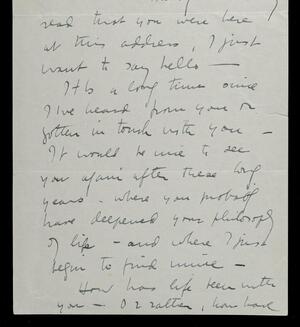 read that you were here
at this address, I just
want to say hello —
It's a long time since
I've heard from you or
gotten in touch with you —
It would be nice to see
you again after these long
years - where you probably
have deepened your philosophy
of life - and where I just
begun to find mine —
How has life been with
you — Or rather, how have